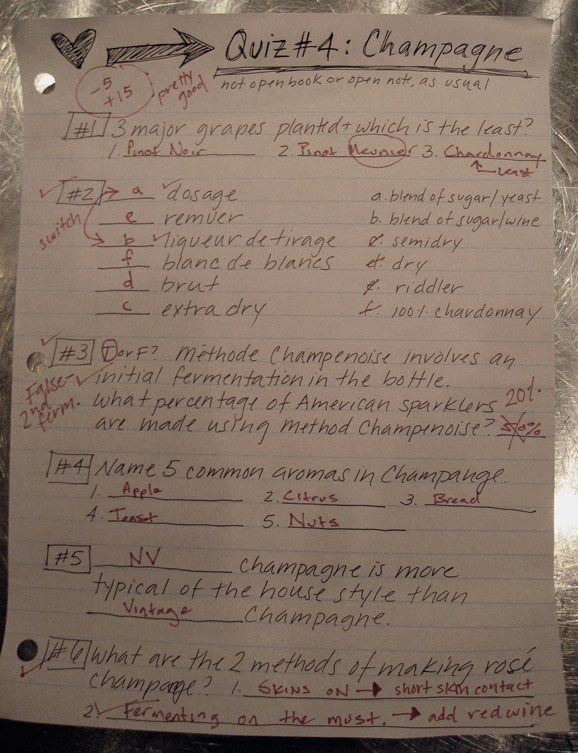 Quiz #4: Champagne
not open book or open note, as usual
-5
+15
pretty good
#1 3 major grapes planted + which is the least?
1. Pinot Noir 2. Pinot Meunier 3. Chardonnay
least
#2 a dosage a. blend of sugar/yeast
switch
e remuer b. blend of sugar/wine
b liqueur de tirage c. semidry
f blanc de blancs d. dry
d brut e. riddler
c extra dry f. 100% chardonnay
#3 T or F? Méthode Champenoise involves an
initial fermentation in the bottle.
False-
2nd
ferm.
What percentage of American sparklers 20%
are made using method Champenoise? 50%
#4 Name 5 common aromas in Champange.
1. Apple 2. Citrus 3. Bread
4. Toast 5. Nuts
#5 NV champagne is more
typical of the house style than
Vintage Champagne.
#6 What are the 2 methods of making rosé
champagne? 1. Skins on → short skin contact
2. Fermenting on the must. → add red wine